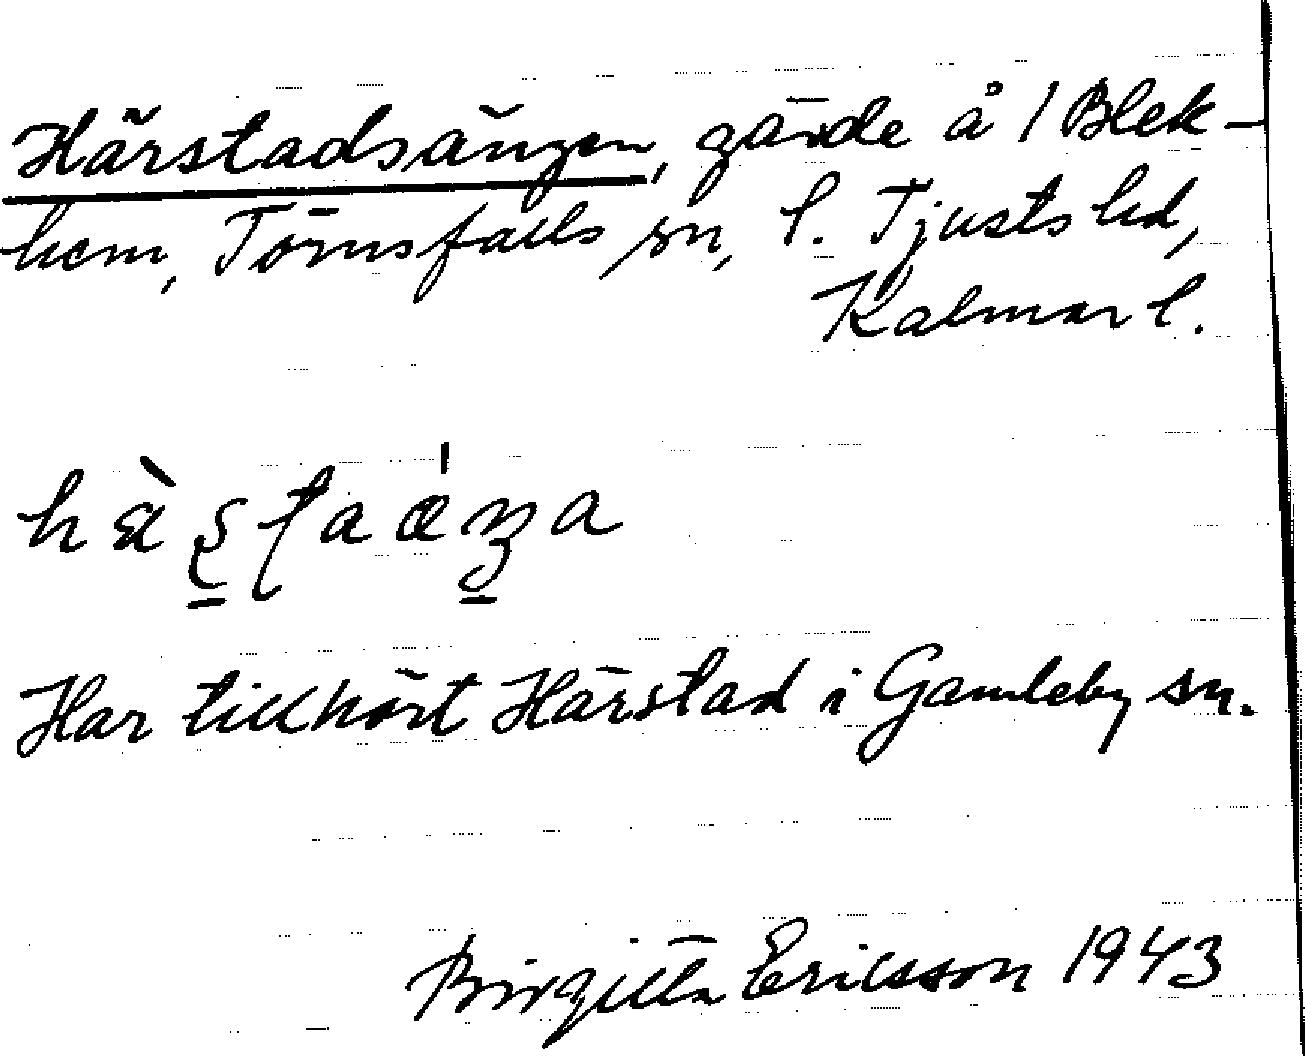 Härstadsängen, gärde å 1 Blek-
hem, Törnsfalls sn, S. Tjusts hd,
Kalmar l.
Har tillhört Härstad i Gamleby sn.
Birgitta Ericsson 1943